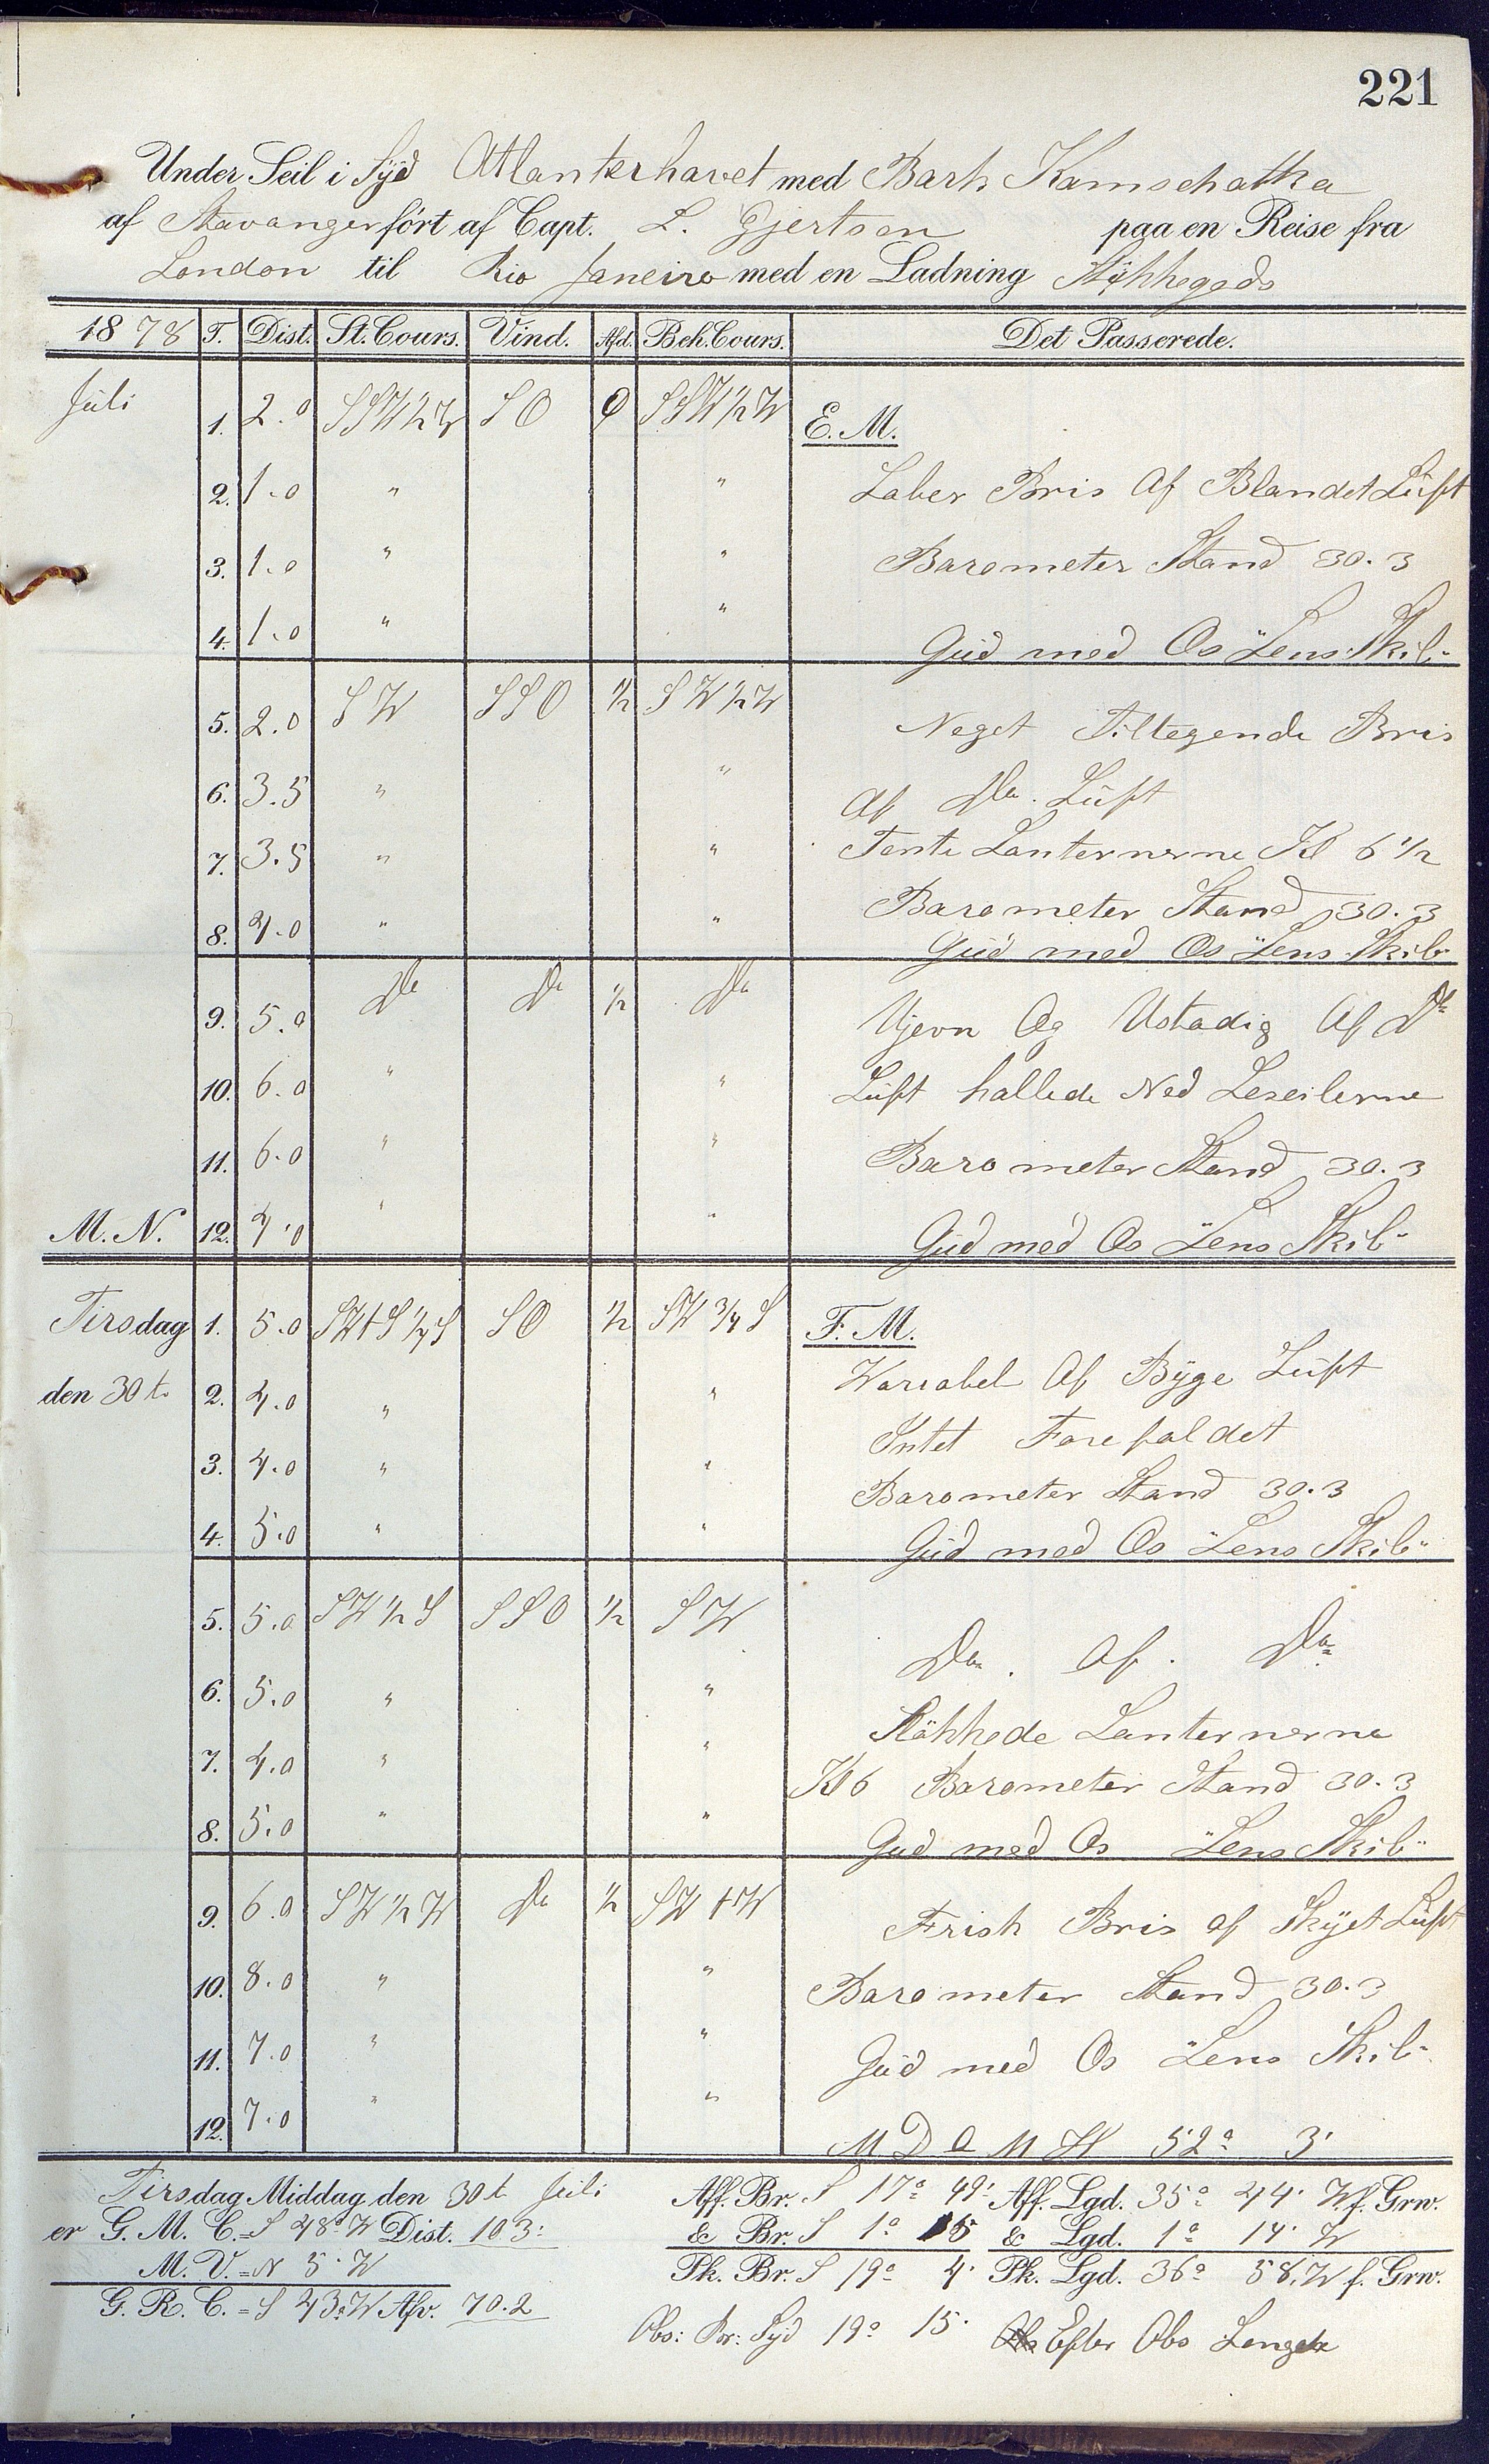 221
Under Seil i Syd Atlanterhavet med Bark Kamschatka
af Stavanger fört af Capt. L. Gjertsen paa en Reise fra
London til Rio Janeiro med en Ladning Stÿkkegods
1878 T. Dist. St. Cours. Vind. Afd. Beh. Cours. Det Passerede.
Juli 1. 2.0 SSW½W SO 0 SSW½W E. M.
2. 1.0 " " Laber Bris Af Blandet Lüft
3. 1.0 " " Barometer Stand 30.3
4. 1.0 " " Güd med Os "Lens Skib"
5. 2.0 SW SSO ½ SW½W Noget Tiltegende Bris
6. 3.5 " " Af Do. Lüft
7. 3.5 " " Tente Lanternerne Kl 6½
8. 4.0 " " Barometer Stand 30.3
Güd med Os "Lens Skib"
9. 5.0 Do Do ½ Do Ujevn Og Ustadig Af Do
10. 6.0 " " Lüft hallede Ned Leseilerne
11. 6.0 " " Barometer Stand 30.3
M. N. 12. 4.0 " " Güd med Os "Lens Skib"
Tirsdag 1. 5.0 SWtS¼S SO ½ SW¾S F. M.
den 30t. 2. 4.0 " " Wariabel Af Bÿge Lüft
3. 4.0 " " Intet Forefaldet
Barometer Stand 30.3
4. 5.0 " " Güd med Os "Lens Skib"
5. 5.0 SW½S SSO ½ SW Do. Af. Do
6. 5.0 " " Slökkede Lanternerne
7. 4.0 " " Kl 6 Barometer Stand 30.3
8. 5.0 " " Gud med Os "Lens Skib"
9. 6.0 SW½W Do ½ SWtW Frisk Bris af Skÿet Lüft
10. 8.0 " " Barometer Stand 30.3
11. 7.0 " " Güd med Os "Lens Skib"
12. 7.0 " " M D O M H 52° 3'
Tirsdag Middag den 30t Juli Aff. Br. S 17° 49' Aff. Lgd. 35° 44' W. f. Grw.
er G. M. C. = S 48° W Dist. 103: & Br. S 1° 15 & Lgd. 1° 14' W
M. V. = N 5° W Pk. Br. S 19° 4' Pk. Lgd. 36° 58' W f. Grw.
G. R. C. = S 43° W Afv. 70.2
Obs: Br: Syd 19° 15' Efter Obs Lengde